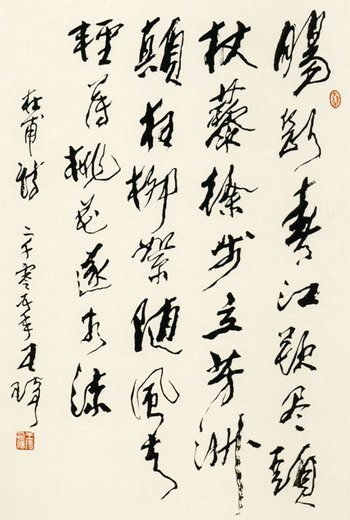 腸斷春江欲盡頭
杖藜徐步立芳洲
顛狂柳絮隨風去
輕薄桃花逐水流
杜甫詩 二千零五年